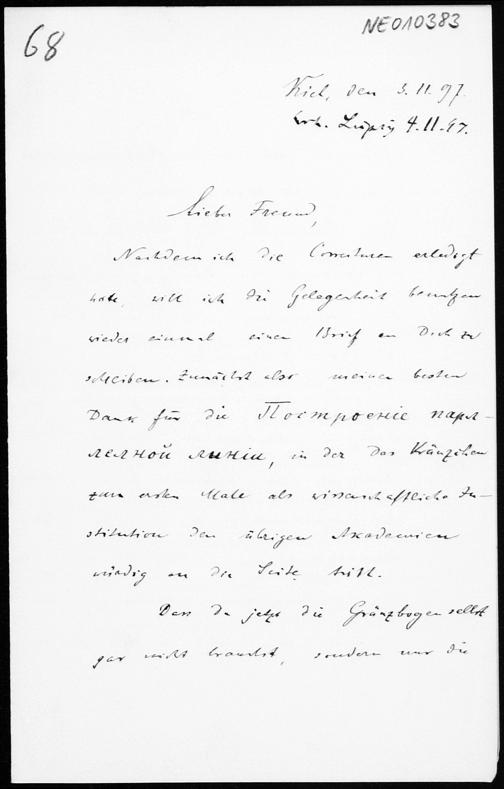 68
NE010383
Kiel, den 3.11.97.
Erh. Leipzig 4.11.97.
Lieber Freund,
Nachdem ich die Correcturen erledigt
habe, will ich die Gelegenheit benutzen
wieder einmal einen Brief an Dich zu
schreiben. Zunächst also meinen besten
Dank für die Построенiе парал-
лелной линiи, in der das Kränzchen
zum ersten Male als wissenschaftliche In-
stitution den übrigen Akademien
würdig an die Seite tritt.
Dass Du jetzt die Gränzbogen selbst
gar nicht brauchst, sondern nur die